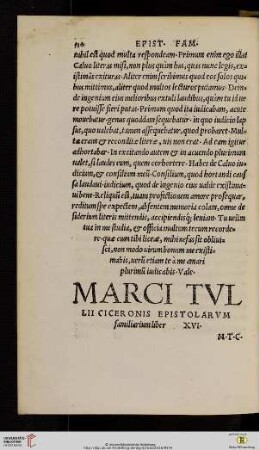 EPIST. FAM.
nihil est quod multa respondeam. Primum enim ego illas
Caluo literas misi, non plus quàm has, quas nunc legis, ex-
istimās exituras. Aliter enim scribimus quod eos solos qui-
bus mittimus, aliter quod multos lecturos putamus. Dein-
de ingenium eius melioribus extuli laudibus, quàm tu id ue-
re potuisse fieri putas. Primum quod ita iudicabam, acute
mouebatur. genus quoddam sequebatur. in quo iudicio lap-
sus, quo ualebat, tamen assequebatur, quod probaret. Mul-
tæ erant, et reconditæ literæ, uis non erat. Ad eam igitur
adhortabar. In excitando autem et in acuendo plurimum
ualet, si laudes eum, quem cohortere. Habes de Caluo iu-
dicium, et consilium meum. Consilium, quod hortandi cau-
sa laudaui. iudicium, quod de ingenio eius ualde existima-
ui bene. Reliquum est, tuam profectionem amore prosequar,
reditum spe expectem, absentem memoria colam, omne de
siderium literis mittendis, accipiendisq; leniam. Tu uelim
tua in me studia, et officia multum tecum recorde-
re. quæ cum tibi liceat, mihi nefas sit obliui-
sci, non modo uirum bonum me existi-
mabis, uerum etiam te à me amari
plurimum iudicabis. Vale.
MARCI TVL
LII CICERONIS EPISTOLARVM
familiarium liber XVI.
M. T. C.